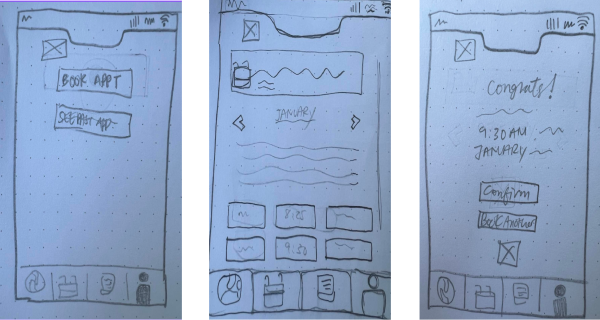 BOOK APPT
SEE PAST APP-
JANUARY
8:25
9:30
Congrats!
9:30 AM
JANUARY
Confirm
Book Another